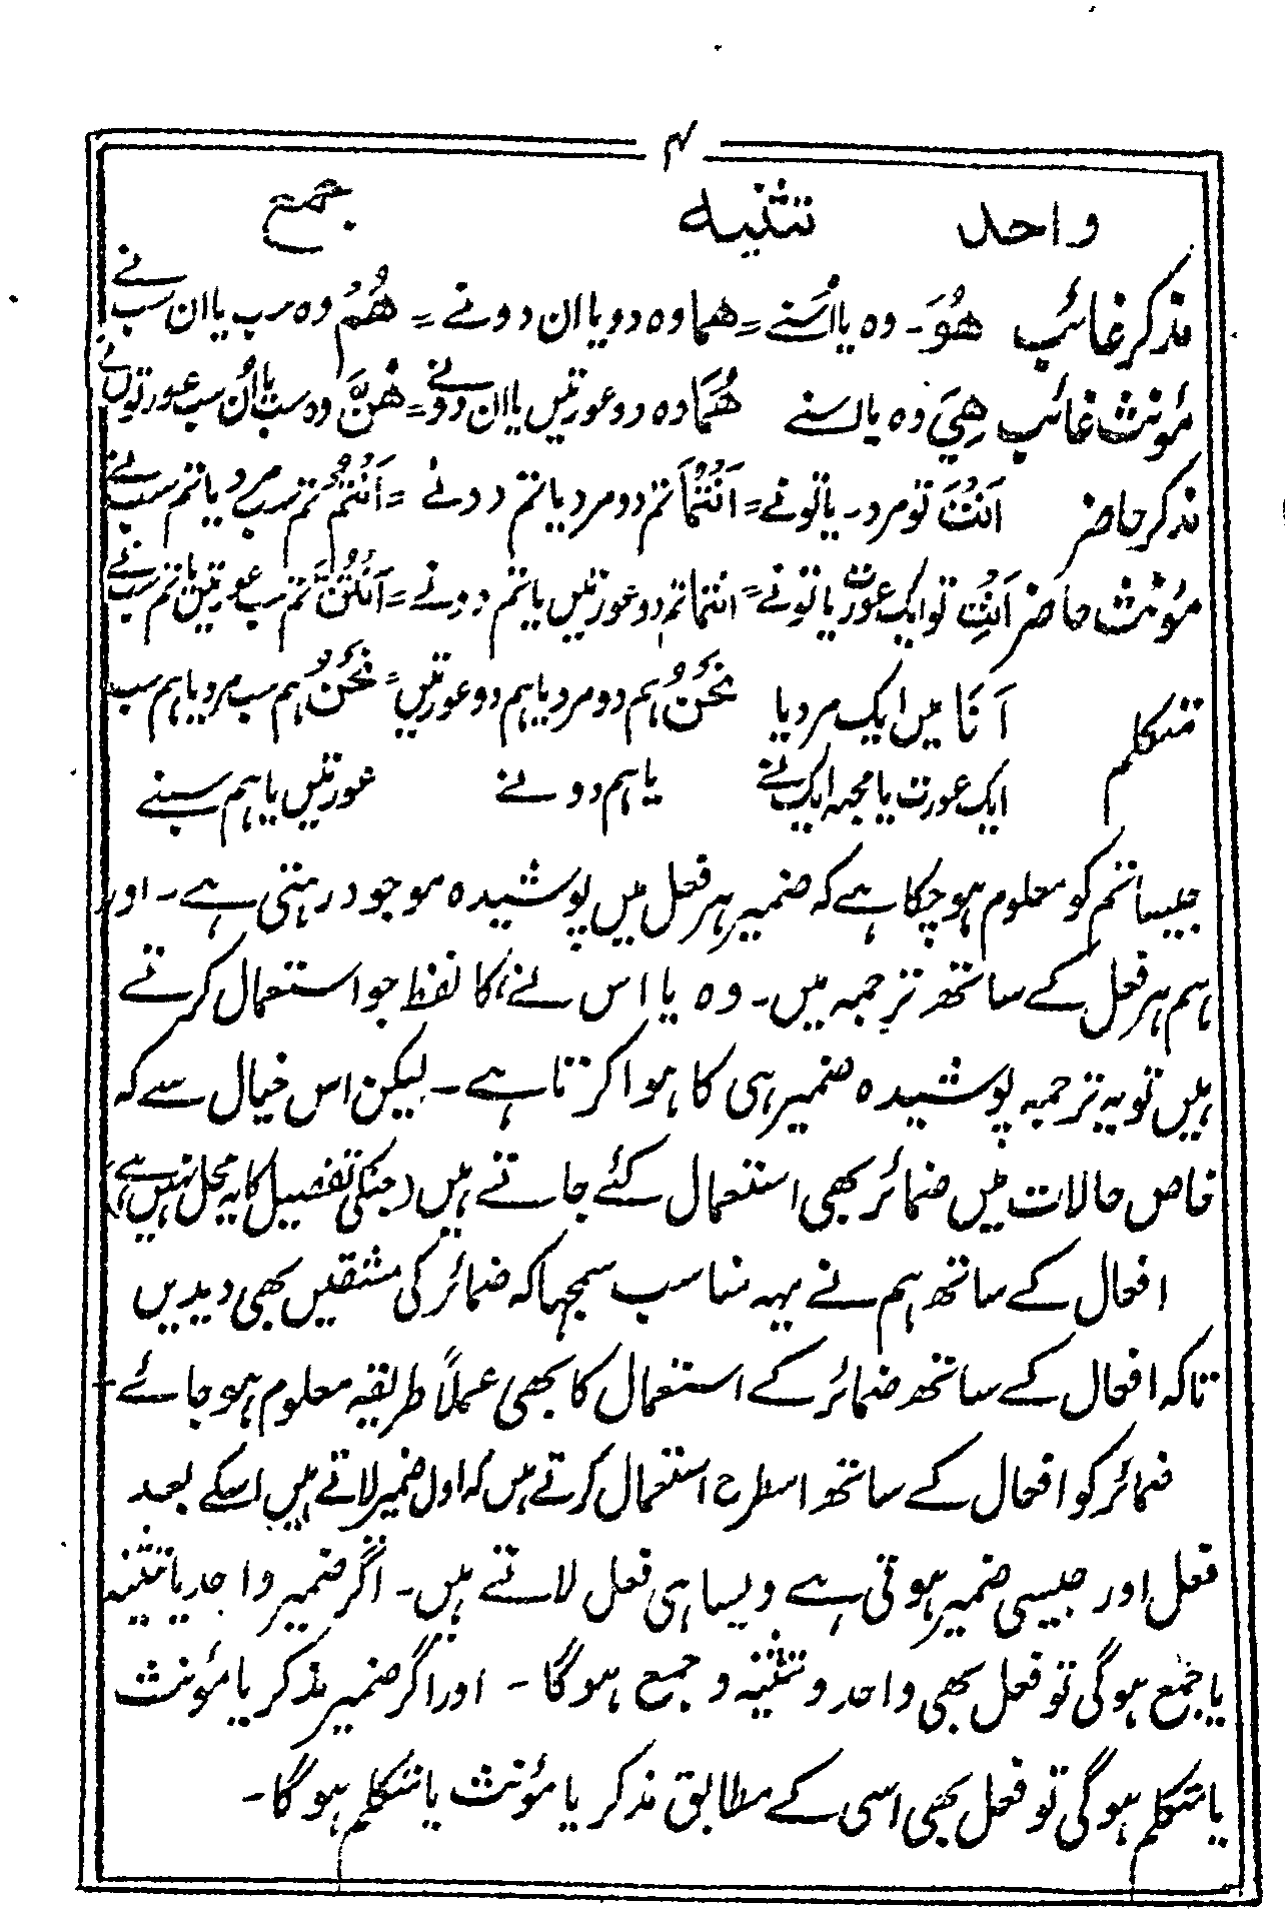 ۴
واحد تثنیہ جمع
مذکر غائب ھُوَ۔ وہ یا اُسنے = ھما وہ دو یا ان دونے = ھُمْ وہ سب یا ان سب نے
مؤنث غائب ھِیَ وہ یا اسنے ھُمَا وہ دو عورتیں یا ان دو نے = ھُنَّ وہ سب یا اُن سب عورتوں نے
مذکر حاضر اَنْتَ تو مرد۔ یا تو نے = اَنْتُمَا تم دو مرد یا تم دونے = اَنْتُمْ تم سب مرد یا تم سب نے
مؤنث حاضر اَنْتِ تو ایک عورت یا تو نے = انتما تم دو عورتیں یا تم دونے = اَنْتُنَّ تم سب عورتیں یا تم سب نے
متکلم اَنَا میں ایک مرد یا نَحْنُ ہم دو مرد یا ہم دو عورتیں = نَحْنُ ہم سب مرد یا ہم سب
ایک عورت یا مجہ ایک نے یا ہم دونے عورتیں یا ہم سبنے
جیسا تم کو معلوم ہو چکا ہے کہ ضمیر ہر فعل میں پوشیدہ موجود رہتی ہے۔ اور
ہم ہر فعل کے ساتھ ترجمہ میں۔ وہ یا اس نے، کا لفظ جو استعمال کرتے
ہیں تو یہ ترجمہ پوشیدہ ضمیر ہی کا ہوا کرتا ہے۔ لیکن اس خیال سے کہ
خاص حالات میں ضمائر بھی استعمال کئے جاتے ہیں (جنکی تفصیل کا یہ محل نہیں ہے)
افعال کے ساتھ ہم نے یہہ مناسب سمجہا کہ ضمائر کی مشقیں بھی دیدیں
تاکہ افعال کے ساتھ ضمائر کے استعمال کا بھی عملاً طریقہ معلوم ہو جائے۔
ضمائر کو افعال کے ساتھ اسطرح استعمال کرتے ہیں کہ اول ضمیر لاتے ہیں اسکے بعد
فعل اور جیسی ضمیر ہوتی ہے ویسا ہی فعل لاتے ہیں۔ اگر ضمیر واحد یا تثنیہ
یا جمع ہوگی تو فعل بھی واحد و تثنیہ و جمع ہوگا۔ اور اگر ضمیر مذکر یا مؤنث
یا متکلم ہوگی تو فعل بھی اسی کے مطابق مذکر یا مؤنث یا متکلم ہوگا۔